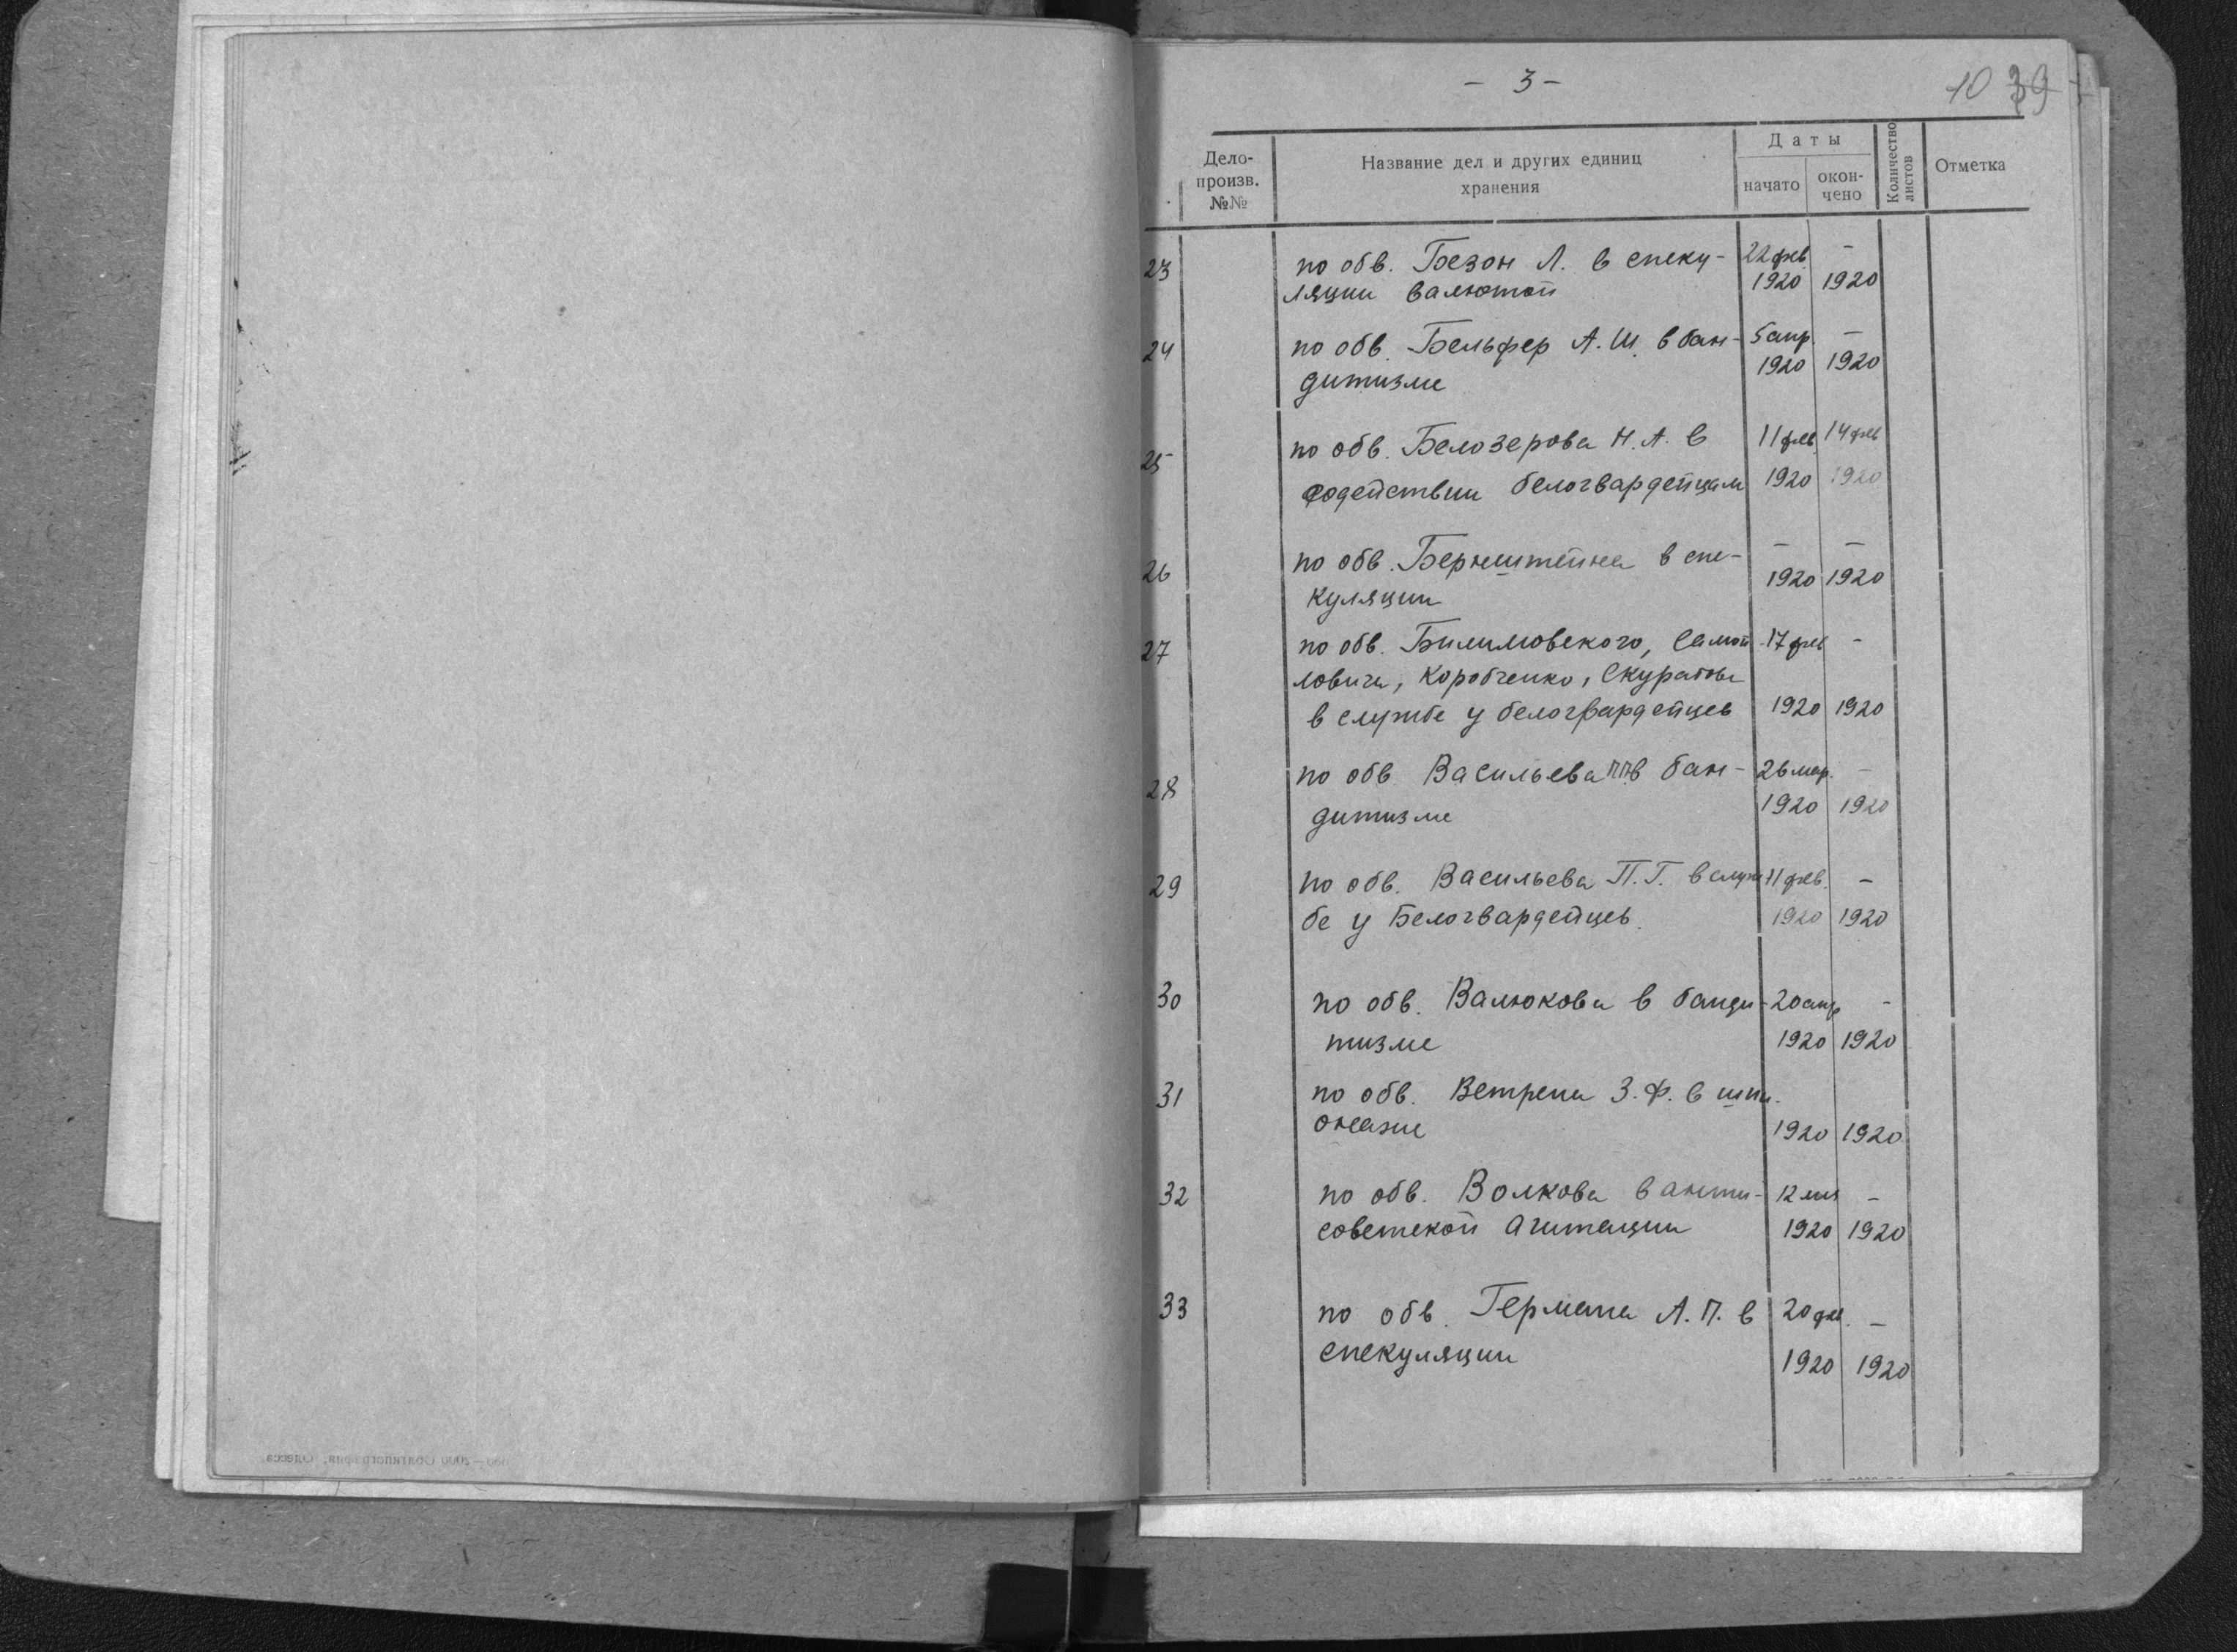 - 3 -
10 39
Дело-
произв.
№№
Название дел и других единиц
хранения
Даты
начато
окон-
чено
Количество
листов
Отметка
23 по обв. Безон Л. в спеку- 22 фев. -
ляции валютой 1920 1920
24 по обв. Бельфер А. Ш. в бан- 5 апр. -
дитизме 1920 1920
25 по обв. Белозерова Н. А. в 11 фев. 14 фев
содействии белогвардейцам 1920 1920
26 по обв. Бернштейна в спе- - -
куляции 1920 1920
27 по обв. Билимовского, Самой- 17 фев -
ловича, Коробченко, Скуратова
в службе у белогвардейцев 1920 1920
28 по обв Васильева ПП в бан- 26 мар. -
дитизме 1920 1920
29 по обв. Васильева П. Г. в служ- 11 фев. -
бе у Белогвардейцев. 1920 1920
30 по обв. Валюкова в банди- 20 апр -
тизме 1920 1920
31 по обв. Ветрена З. Ф. в шпи-
онаже 1920 1920
32 по обв. Волкова в анти- 12 -
советской агитации 1920 1920
33 по обв. Германа А. П. в 20 фев. -
спекуляции 1920 1920